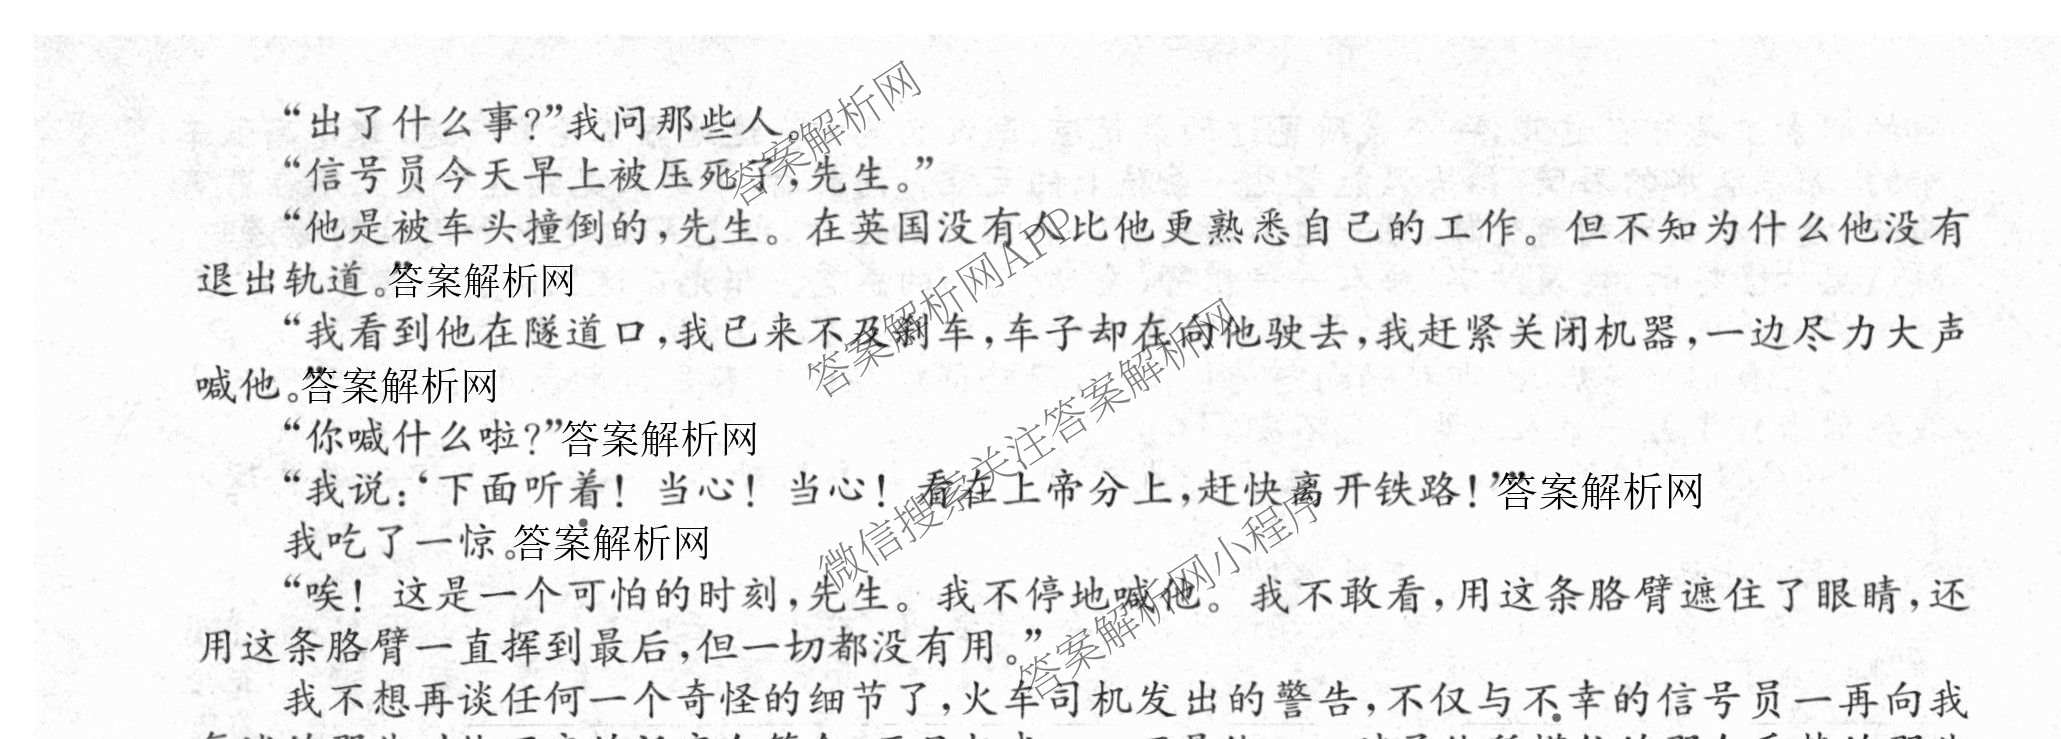 “出了什么事?”我问那些人。
“信号员今天早上被压死了,先生。”
“他是被车头撞倒的,先生。在英国没有人比他更熟悉自己的工作。但不知为什么他没有
退出轨道。”答案解析网
“我看到他在隧道口,我已来不及刹车,车子却在向他驶去,我赶紧关闭机器,一边尽力大声
喊他。”答案解析网
“你喊什么啦?”答案解析网
“我说:‘下面听着!当心!当心!看在上帝分上,赶快离开铁路!’”答案解析网
我吃了一惊。答案解析网
“唉!这是一个可怕的时刻,先生。我不停地喊他。我不敢看,用这条胳臂遮住了眼睛,还
用这条胳臂一直挥到最后,但一切都没有用。”
我不想再谈任何一个奇怪的细节了,火车司机发出的警告,不仅与不幸的信号员一再向我
答案解析网
答案解析网APP
微信搜索关注答案解析网
答案解析网小程序